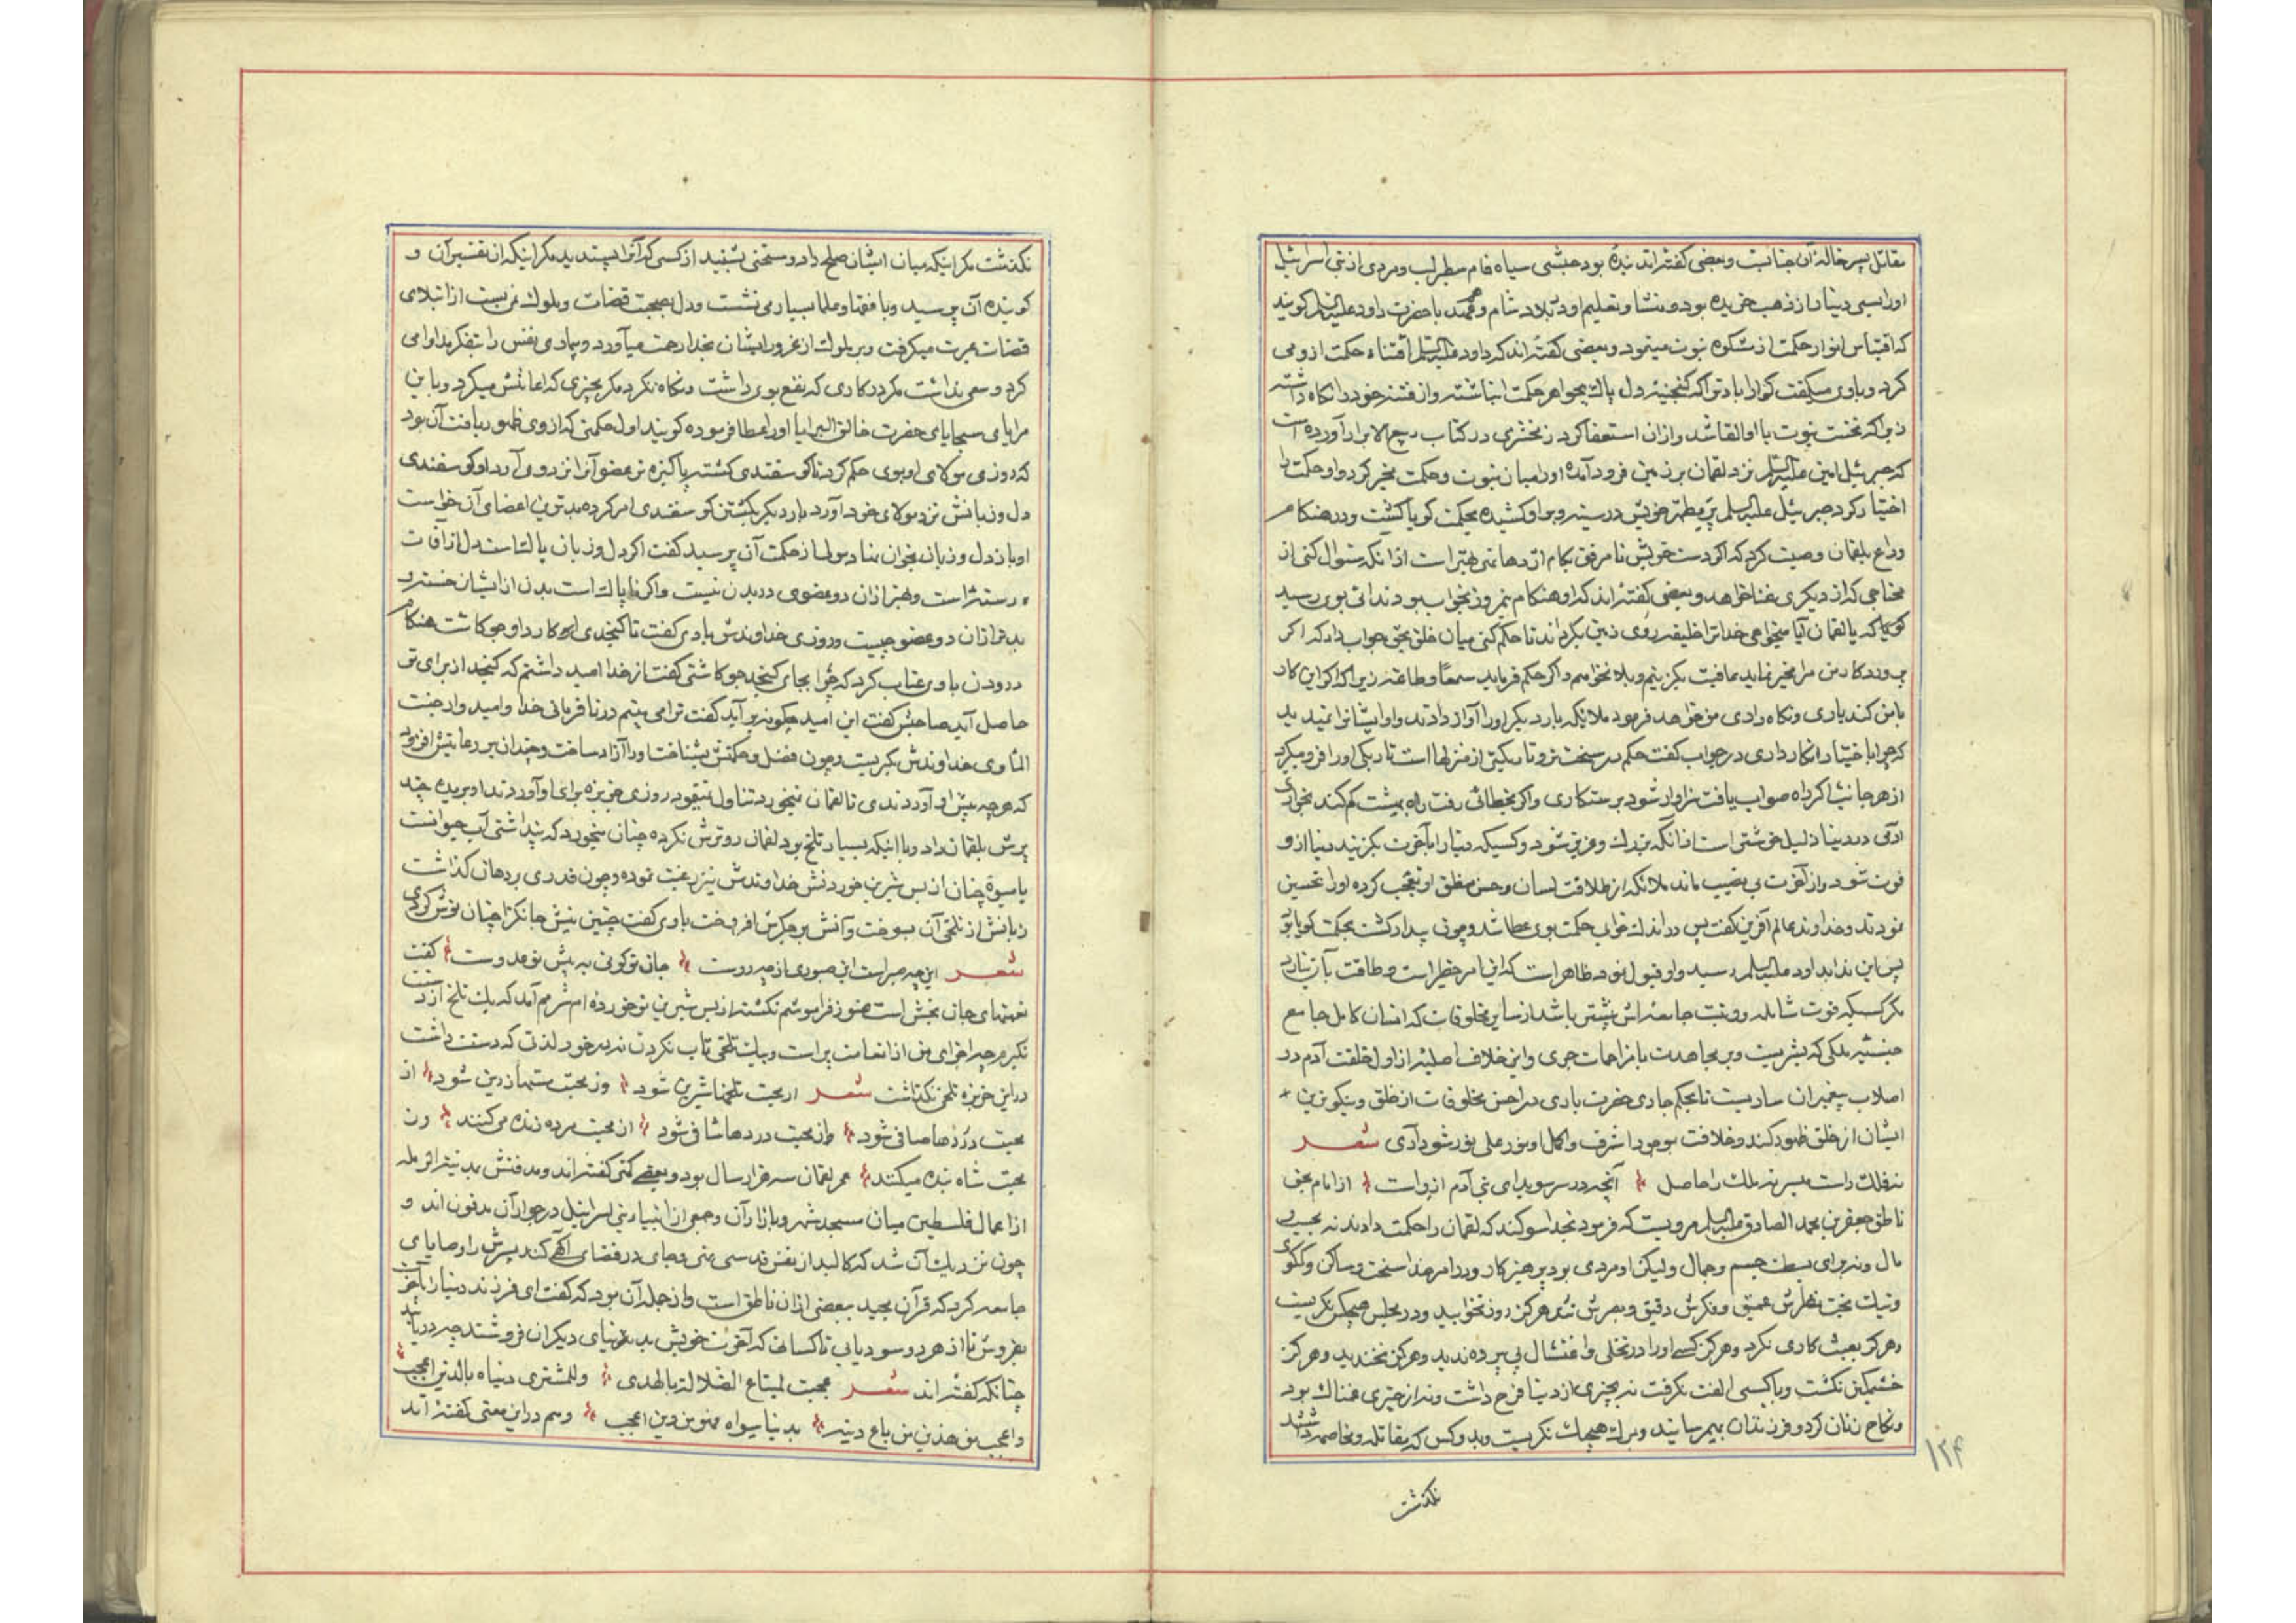 مقاتل پسر خاله آن جنابست و بعضی گفته‌اند بندهٔ بود حبشی سیاه فام سطبر لب و مردی از بنی اسرائیل
او را بسی دینار از ذهب خریده بود و منشأ و تعلیم او در بلاد شام و عهد با حضرت داود علیه السلم گویند
که اقتباس انوار حکمت از مشکوه نبوت مینمود و بعضی گفته‌اند که داود علیه السلم اقتناء حکمت از وی می
کرد و باوی میگفت گوارا باد ترا که گنجینه دل پاک بجواهر حکمت انباشته و از فتنه خود را نگاه داشته
زیرا که نخست نبوت با او القا شد و از ان استعفا کرد زمخشری در کتاب ربیع الابرار آورده است
که جبرئیل امین علیه السلم نزد لقمان بر زمین فرود آمده او را میان نبوت و حکمت مخیر کرد و او حکمت را
اختیار کرد جبرئیل علیه السلم پر مطهر خویش در سینه و بر او کشیده بحکمت گویا گشت و در هنگام
وداع بلقمان وصیت کرد که اگر دست خویش تا مرفق بکام اژدها نهی بهتر است از آنکه سئوال کنی از
محتاجی که از دیگری غنا خواهد و بعضی گفته‌اند که او هنگام نیمروز بخواب بود ندائی بوی رسید
گویا که یا لقمان آیا میخواهی خدا ترا خلیفه روی زمین بگرداند تا حکم کنی میان خلق بحق جواب داد که اگر
پروردگار من مرا مخیر نماید عافیت بگزینم و بلا نخواهم و اگر حکم فرماید سمعًا و طاعة زیرا که اگر این کار
با من کند یاری و نگاه داری من خواهد فرمود ملائکه بار دیگر او را آواز دادند و او ایشانرا نمید ید
که چرا با اختیار انکار داری در جواب گفت حکم در سخت‌تر و تاریکتر از منزلها است تاریکی او را فرو میگیرد
از هر جانب اگر راه صواب یافت سزاوار شود برستکاری و اگر بخطائی رفت راه بهشت گم کند بخواری
آدمی در دنیا ذلیل خوشتر است از آنکه بزرک و عزیز شود و کسیکه دنیا را با آخرت بگزیند دنیا از و
فوت شود و از آخرت بی نصیب ماند ملائکه از طلاقت لسان و حسن منطق او تعجب کرده او را تحسین
نمودند و خداوند عالم آفرین گفت پس در اندک خواب حکمت بوی عطا شد و چون بیدار گشت بحکمت گویا بود
پس این ندا بداود علیه السلم رسید و او قبول نمود ظاهر است که این امر خطیر است و طاقت بآن نیارد
مگر کسیکه قوت شامله و رتبت جامعه اش بیشتر باشد از سایر مخلوقات که انسان کامل جامع
جنبتین ملکی که بشریت و بر مجاهدت با مزاحمات جری و این خلاف اصلیه از اول خلقت آدم در
اصلاب پیغمبران ساریست تا بحکم جاری حضرت باری در احسن مخلوقات از خلق و نیکوترین
ایشان از خلق ظهور کند و خلافت بوجود اشرف و اکمل او نور علی نور شود آری شعر
نه فلک راست میسر نه ملک را حاصل آنچه در سر سویدای بنی آدم از واست از امام بحق
ناطق جعفر بن محمد الصادق علیه السلم مرویست که فرمود بخدا سوگند که لقمان را حکمت دادند نه بحسب
مال و نه برای بسطت جسم و جمال و لیکن او مردی بود پرهیزکار و در امر خدا سخت و ساکن و کم گوی
و نیک بخت نظرش عمیق و فکرش دقیق و بصرش تند هرگز روز نخوابید و در مجلس هیچکس نگریست
و هرگز بعبث کاری نکرد و هرگز کسی او را در تخلی و اغتسال بی پرده ندید و هرگز نخندید و هرگز
خشمگین نگشت و با کسی الفت نگرفت نه بچیزی از دنیا فرح داشت و نه از چیزی غمناک بود
و نکاح زنان کرد و فرزندان بهم رسانید و بر مرک هیچیک نگریست و بر دو کس که مقاتله و مخاصمه داشتند
نگذشت
۱۲۴
نگذشت مگر اینکه میان ایشان صلح داد و سخنی نشنید از کسی که آنرا پسندید مگر اینکه از تفسیر آن و
گوینده آن پرسید و با فقها و علما بسیار می نشست و دل بصحبت قضات و ملوک نمی بست از ابتلای
قضات عبرت میگرفت و بر ملوک از غرور ایشان بخدا رحمت میآورد و بیماری نفس را بتفکر مداوا می
کرد و سعی نداشت مگر در کاری که نفع بوی داشت و نگاه نکرد مگر بچیزی که اعانتش میکرد و با این
مرایای سجایای حضرت خالق البرایا او را عطا فرموده گویند اول حکمتی که از وی ظهور یافت آن بود
که روزی مولای او بوی حکم کرد تا گوسفندی کشته پاکیزه تر عضو آنرا نزد وی آرد او گوسفندی
دل و زبانش نزد مولای خود آورد بار دیگر بکشتن گوسفندی امر کرده بدترین اعضای آن خواست
او باز دل و زبان بخوان نهاد مولا از حکمت آن پرسید گفت اگر دل و زبان پاک است دل از آفات
رسته است و بهتر از ان دو عضوی در بدن نیست و اگر ناپاک است بدن از ایشان خسته و
بدتر از ان دو عضو چیست و روزی خداوندش بادی گفت تا کنجدی او کارد او جو کاشت هنگام
درودن باوی عتاب کرد که چرا بجای کنجد جو کاشتی گفت از خدا امید داشتم که کنجد از برای تو
حاصل آید صاحبش گفت این امید چگونه بر آید گفت ترا می بینم در نافرمانی خدا و امیدوار جنت
المأوی خداوندش بگریست و چون فضل و حکمتش بشناخت او را آزاد ساخت و چندان بر رعایتش افزود
که هر چه پیش او آوردندی تا لقمان نمیخورد تناول ننمود روزی خربزه برای او آوردند او بریده چند
برش بلقمان داد و با اینکه بسیار تلخ بود لقمان رو ترش نکرده چنان میخورد که پنداشتی آب حیوانست
یا میوهٔ چنان از بس شیرین خوردنش خداوندش نیز رغبت نموده و چون قدری بر دهان گذاشت
زبانش از تلخی آن بسوخت و آتش بر جگرش افروخت باوی گفت چنین نیش جانگزا چنان نوش کردی
شعر این چه صبر است این صبوری از چه روست جان تو گوئی به پیش تو عدوست گفت
نعمتهای جان بخش است هنوز فراموشم نگشته از بس شیرین تو خورده‌ام شرمم آمد که یک تلخ از دستت
نگیرم چه اجزای من از انعامت پر است و بیک تلخی تاب نکردن نه در خورد لذتی که دستت داشت
در این خربزه تلخی نگذاشت شعر از محبت تلخها شیرین شود وز محبت مسها زرین شود از
محبت دردها صافی شود وز محبت دردها شافی شود از محبت مرده زنده می کنند وز
محبت شاه بنده میکنند عمر لقمان سه هزار سال بود و بعضی کمتر گفته‌اند و مدفنش مدینة الرمله
از اعمال فلسطین میان مسجد شهر و بازار آن و جمعی از انبیاء بنی اسرائیل در جوار آن مدفون اند و
چون نزدیک آن شد که کالبد از نفس قدسی تهی و جای در فضای الهی کند پسرش را وصایای
جامعه کرد که قرآن مجید ببعضی ازان ناطق است و از جمله آن بود که گفت ای فرزند دنیا را بآخرت
بفروش تا از هر دو سود یابی نا کسانی که آخرت خویش بدنیای دیگران فروشند چه دریابند
چنانکه گفته‌اند شعر عجبت لمبتاع الضلالة بالهدی وللمشتری دنیاه بالدین اعجب
واعجب من هذین من باع دینه بدنیا سواه فهو من ذین اعجب و هم در این معنی گفته‌اند